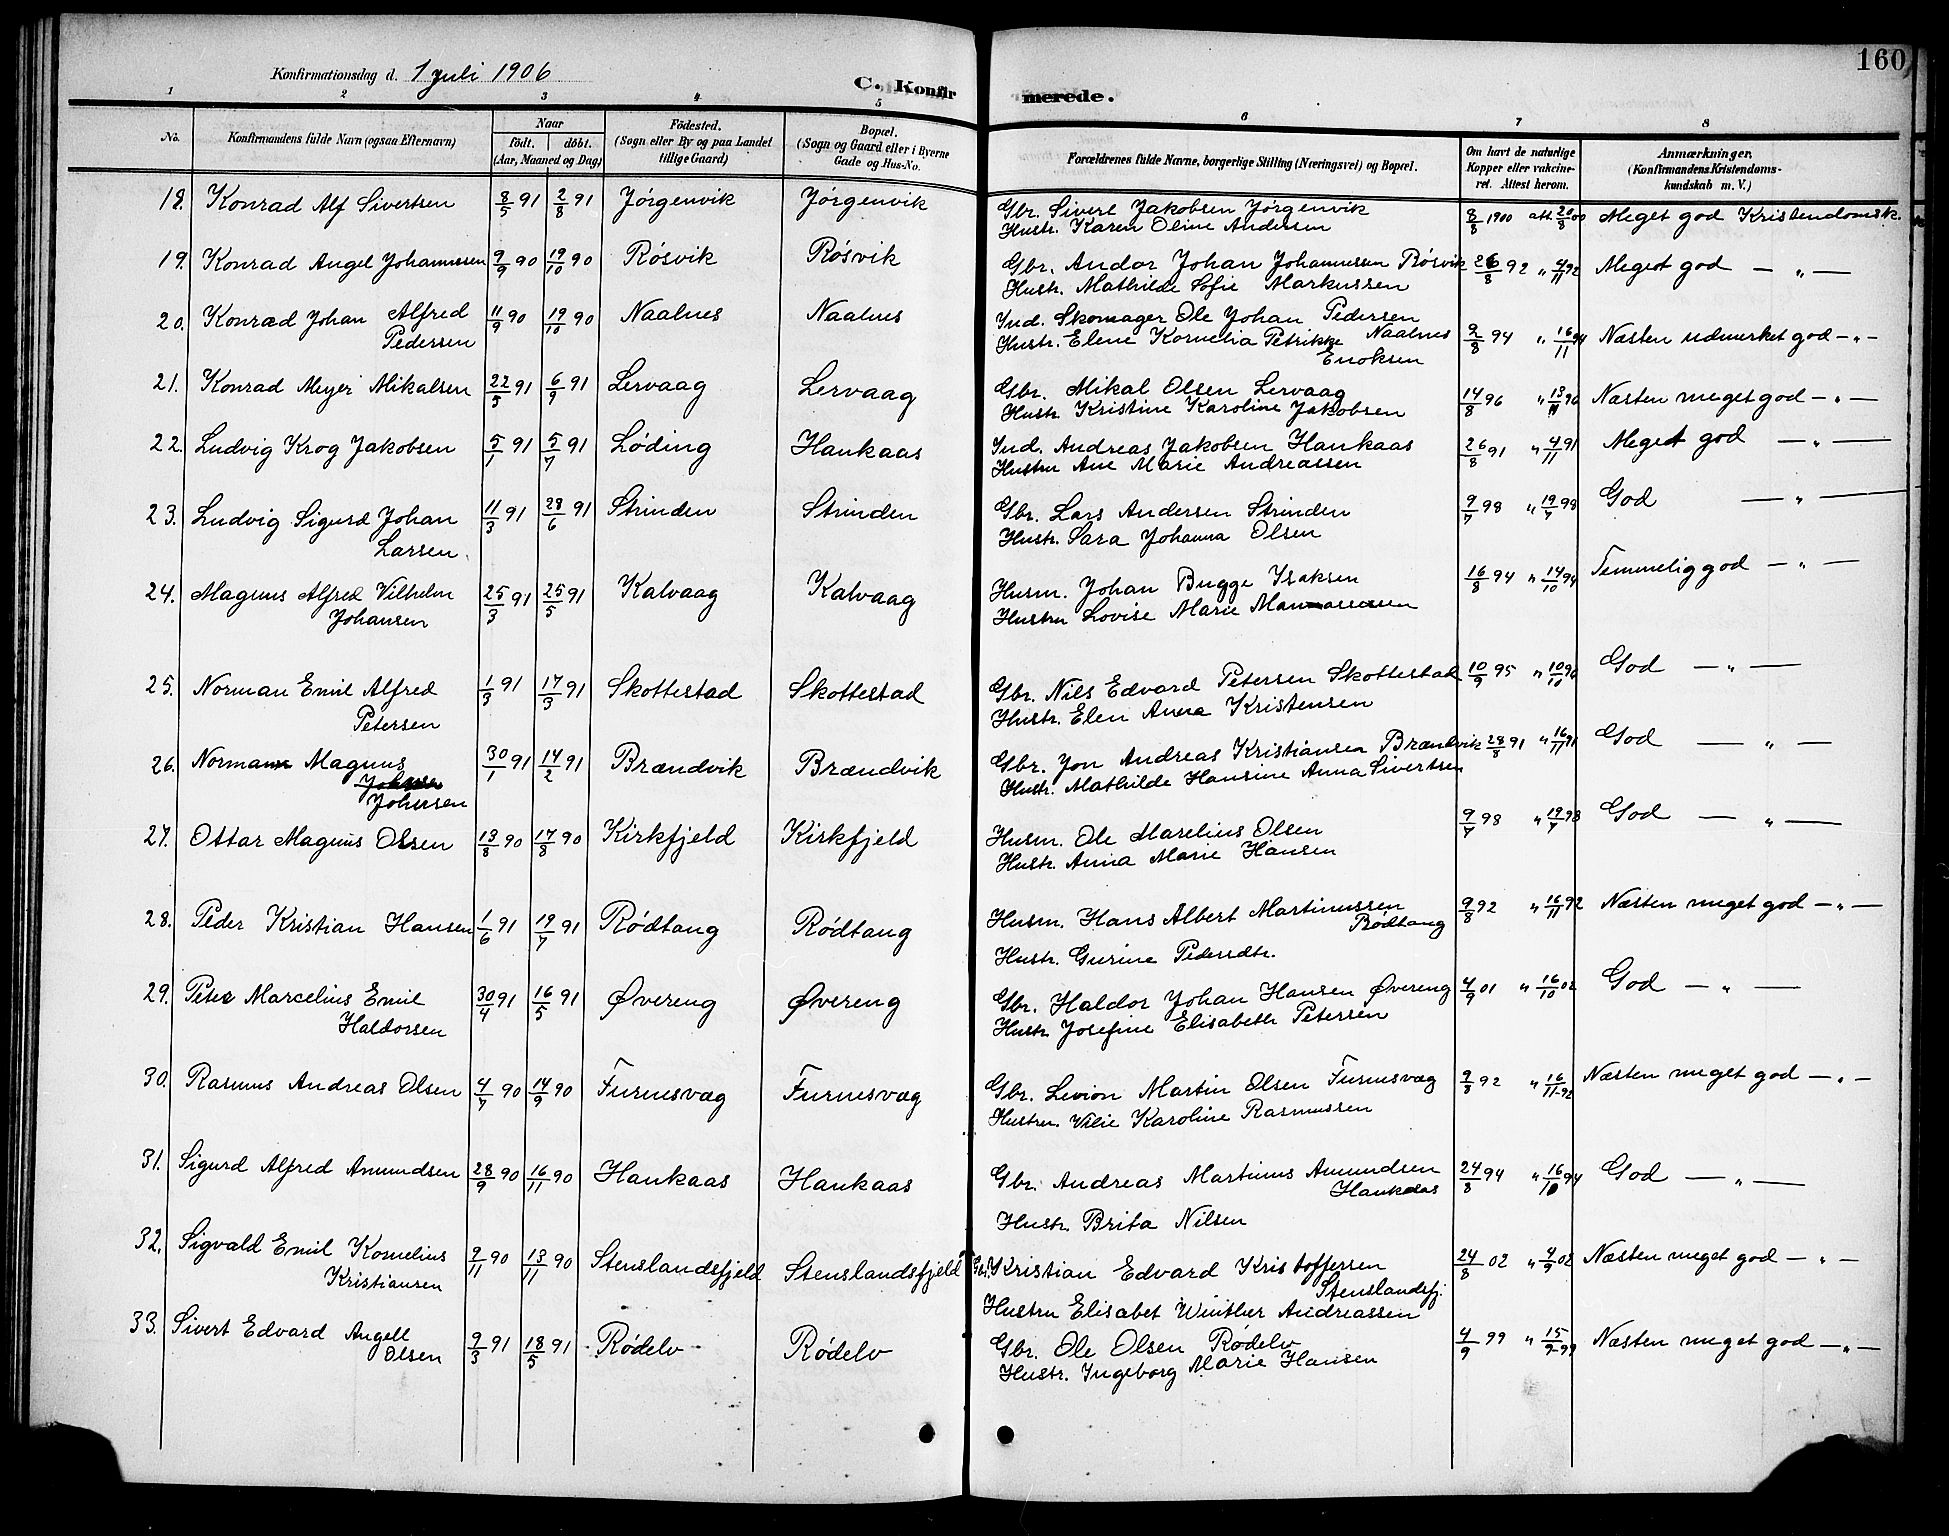 160
Konfirmationsdag d. 1 Juli 1906
C. Konfirmerede.
1 2 3 4 5 6 7 8
No. Konfirmandens fulde Navn (ogsaa Efternavn) Naar Födested. Bopæl. Forældrenes fulde Navne, borgerlige Stilling (Næringsvei) og Bopæl. Om havt de naturlige Anmærkninger.
födt. döbt. (Sogn eller By og paa Landet (Sogn og Gaard eller i Byerne Kopper eller vakcine- (Konfirmandens Kristendoms-
(Aar, Maaned og Dag) tillige Gaard) Gade og Hus-No. ret. Attest herom. kundskab m. V.)
18. Konrad Alf Sivertsen 8/5 91 2/8 91 Jørgenvik Jørgenvik Gbr. Sivert Jakobsen Jørgenvik 8/8 1900 att 20/8 00 Meget god Kristendomsk.
Hustr. Karen Oline Andersen
19. Konrad Angel Johannessen 9/9 90 19/10 90 Røsvik Røsvik Gbr. Andor Johan Johannessen Røsvik 26/8 92 " 4/11 92 Meget god — " —
Hustr. Mathilde Sofie Markussen
20. Konrad Johan Alfred 11/9 90 19/10 90 Naalnes Naalnes Ind. Skomager Ole Johan Pedersen
Pedersen Hustr. Elene Kornelia Petrikke Naalnes 9/8 94 " 16/11 94 Næsten udmerket god — " —
Enoksen
21. Konrad Meyer Mikalsen 22/5 91 6/9 91 Lervaag Lervaag Gbr. Mikal Olsen Lervaag 14/8 96 " 13/11 96 Næsten meget god — " —
Hustr. Kristine Karoline Jakobsen
22. Ludvig Krog Jakobsen 5/1 91 5/7 91 Løding Haukaas Ind. Andreas Jakobsen Haukaas 26/8 91 " 4/11 91 Meget god — " —
Hustru Ane Marie Andreassen
23. Ludvig Sigurd Johan 11/3 91 28/6 91 Strinden Strinden Gbr. Lars Andersen Strinden 9/7 98 " 19/7 98 God — " —
Larsen. Hustr. Sara Johanna Olsen
24. Magnus Alfred Vilhelm 25/3 91 25/5 91 Kalvaag Kalvaag Husm. Johan Bugge Isaksen 16/8 94 " 14/10 94 Temmelig god — " —
Johansen Hustru Lovise Marie
25. Norman Emil Alfred 1/3 91 17/3 91 Skottestad Skottestad Gbr. Nils Edvard Petersen Skottestad 10/9 95 " 10/10 96 God — " —
Petersen Hustr. Elen Anna Kristensen
26. Normann Magnus 30/1 91 14/2 91 Brændvik Brændvik Gbr. Jon Andreas Kristiansen Brændvik 28/8 91 " 16/11 91 God — " —
Johnsen Hustr. Mathilde Hansine Anna Sivertsen
27. Ottar Magnus Olsen 13/8 90 17/8 90 Kirkfjeld Kirkfjeld Husm. Ole Marelius Olsen 9/7 98 " 19/7 98 God — " —
Hustr. Anna Marie Hansen
28. Peder Kristian Hansen 1/6 91 19/7 91 Rødtang Rødtang Husm. Hans Albert Martinussen 9/8 92 " 16/11 92 Næsten meget god — " —
Rødtang
Hustr. Gurine Pedersdtr.
29. Peter Marcelius Emil 30/4 91 16/5 91 Øvereng Øvereng Gbr. Haldor Johan Hansen Øvereng 4/9 01 " 16/10 02 God — " —
Haldorsen Hustr. Josefine Elisabeth Petersen
30. Rasmus Andreas Olsen 4/7 90 14/9 90 Furnesvag Furnesvag Gbr. Livion Martin Olsen Furnesvag 9/8 92 " 16/11-92 Næsten meget god — " —
Hustru. Vilie Karoline Rasmussen
31. Sigurd Alfred Amundsen 28/9 90 16/11 90 Haukaas Haukaas Gbr. Andreas Martinus Amundsen 24/8 94 " 16/10 94 God — " —
Haukaas
Hustr. Brita Nilsen
32. Sigvald Emil Kornelius 9/11 90 13/11 90 Stenslandsfjeld Stenslandsfjeld Gbr. Kristian Edvard Kristoffersen 24/8 02 " 4/9 02 Næsten meget god — " —
Kristiansen Stenslandsfj.
Hustru Elisabet Winther Andreassen
33. Sivert Edvard Angell 9/3 91 18/5 91 Rødelv Rødelv Gbr. Ole Olsen Rødelv 4/9 99 " 15/9-99 Næsten meget god — " —
Olsen Hustr. Ingeborg Marie Hansen